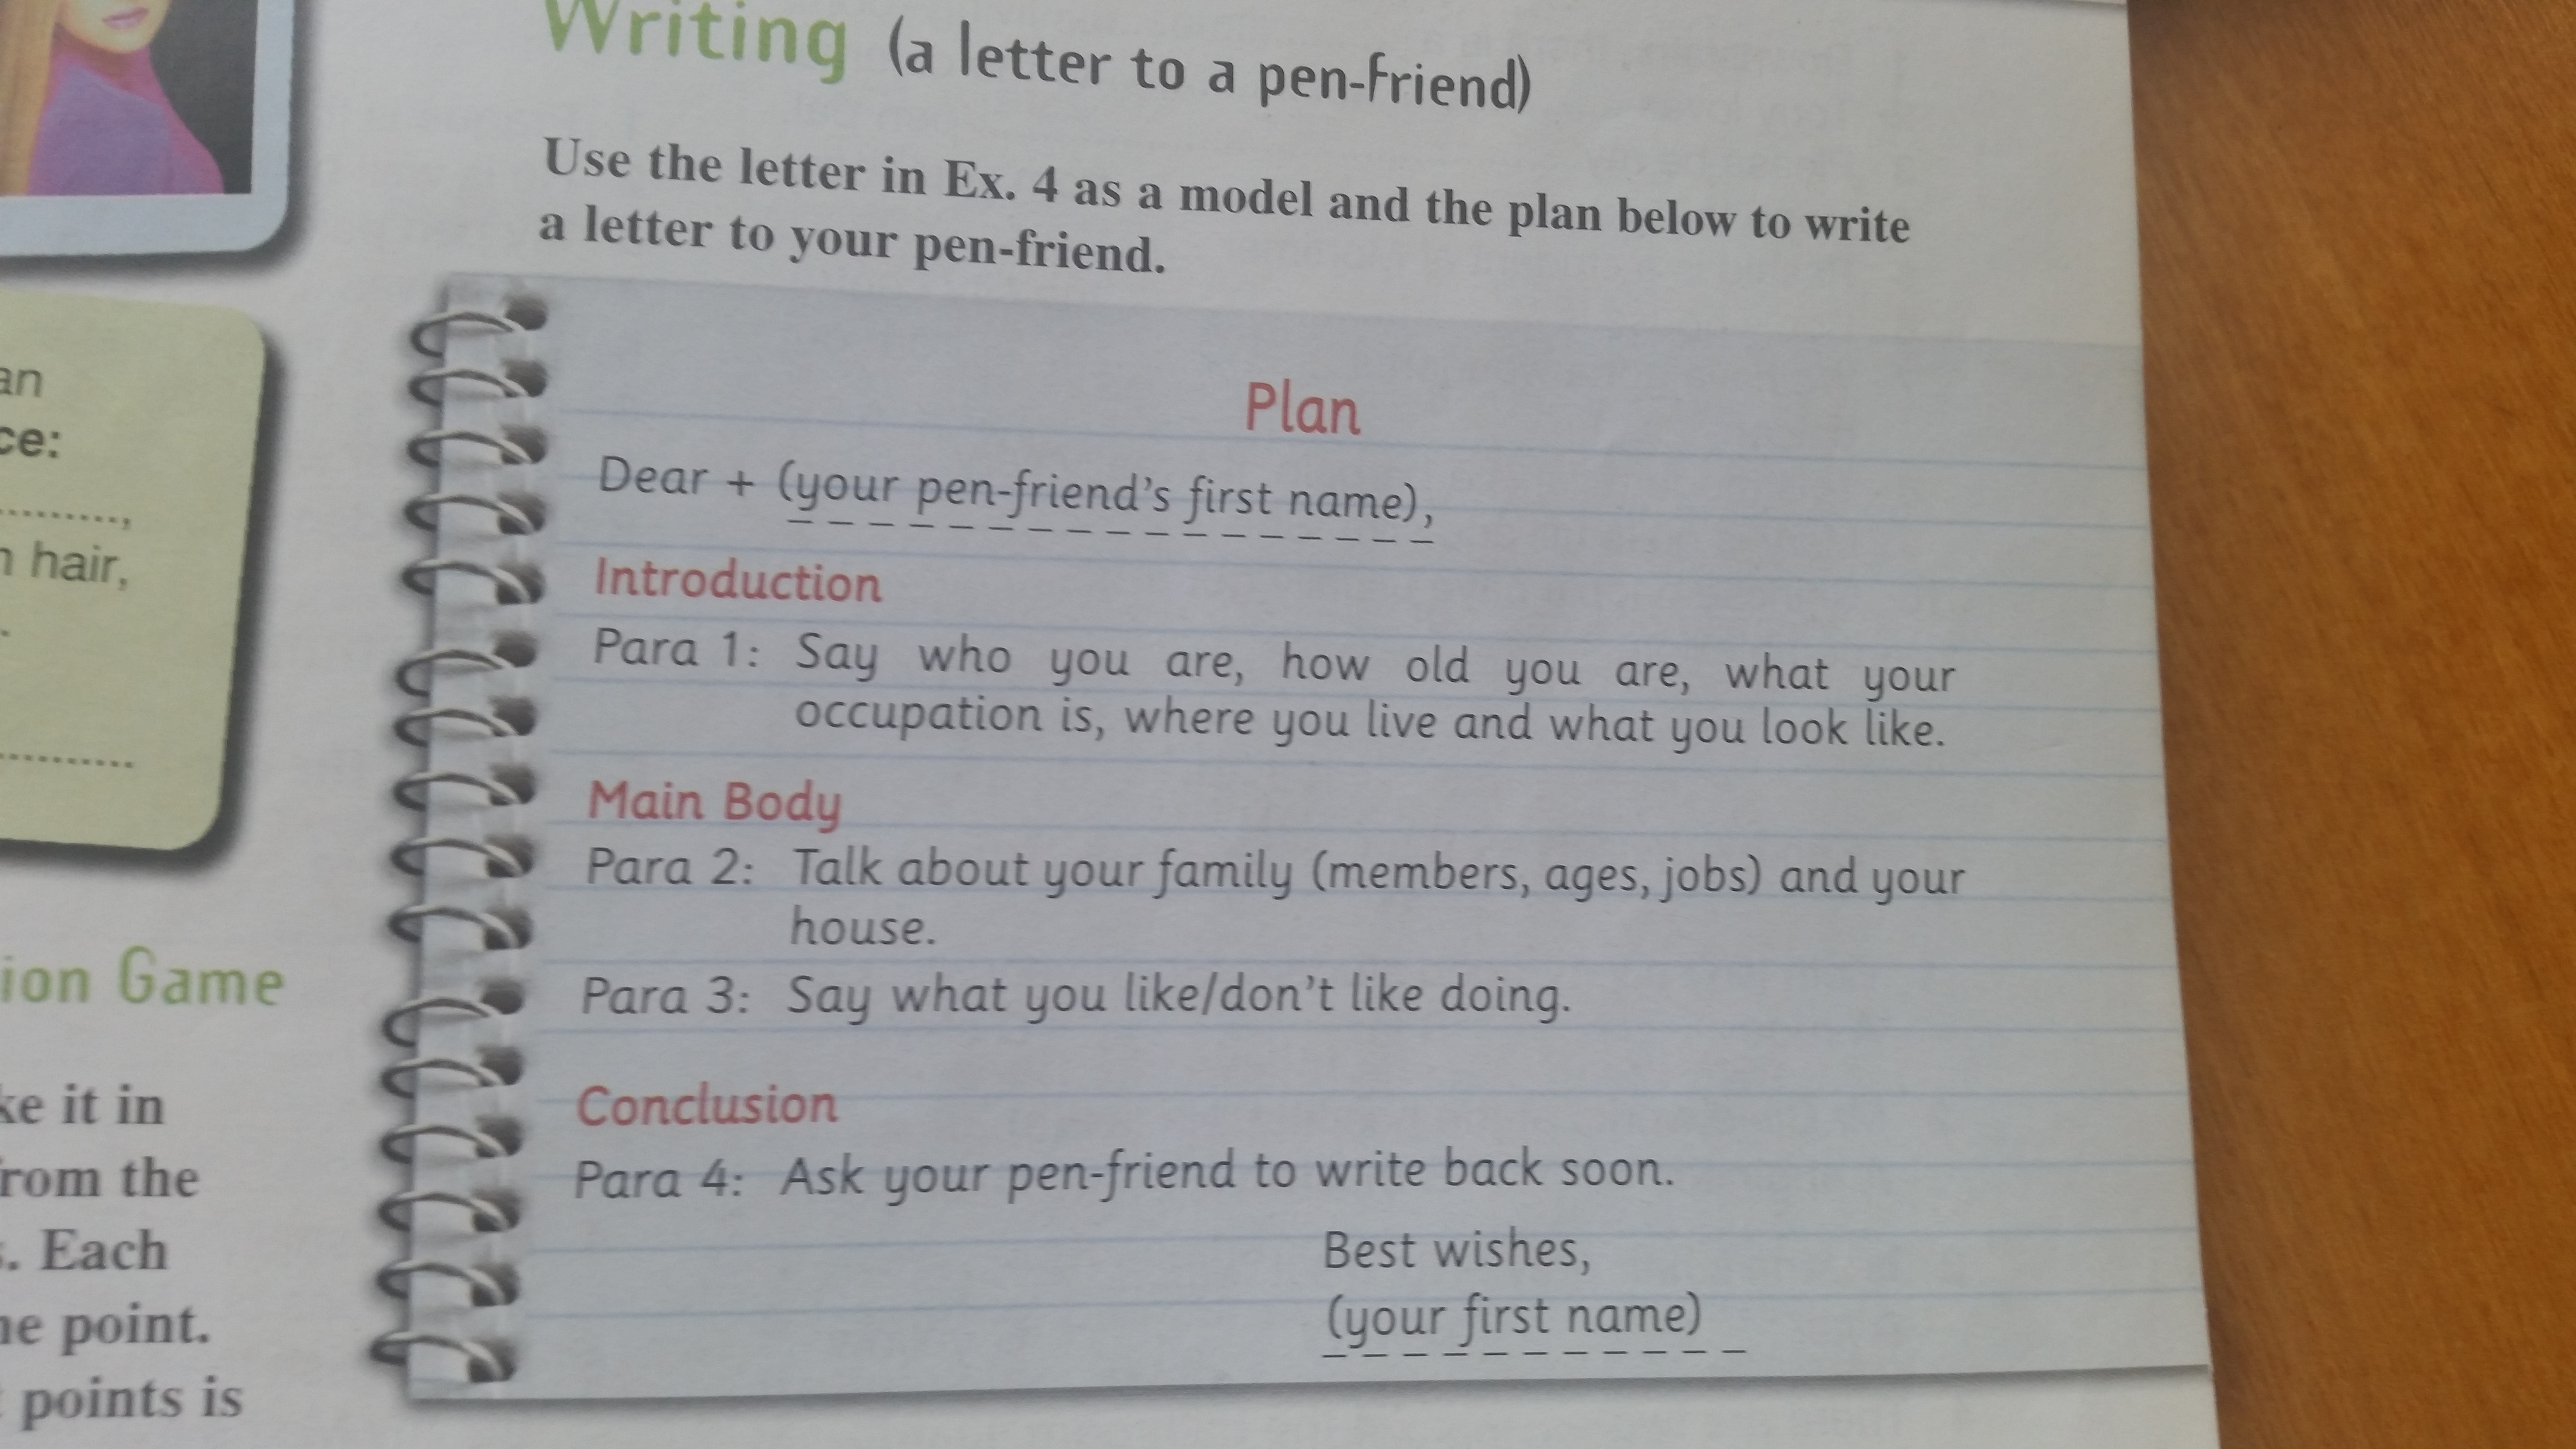 Writing (a letter to a pen-friend)
Use the letter in Ex. 4 as a model and the plan below to write
a letter to your pen-friend.
Plan
Dear + (your pen-friend's first name),
Introduction
Para 1: Say who you are, how old you are, what your
occupation is, where you live and what you look like.
Main Body
Para 2: Talk about your family (members, ages, jobs) and your
house.
Para 3: Say what you like/don't like doing.
Conclusion
Para 4: Ask your pen-friend to write back soon.
Best wishes,
(your first name)
hair,
Game
it in
the
. Each
point.
points is